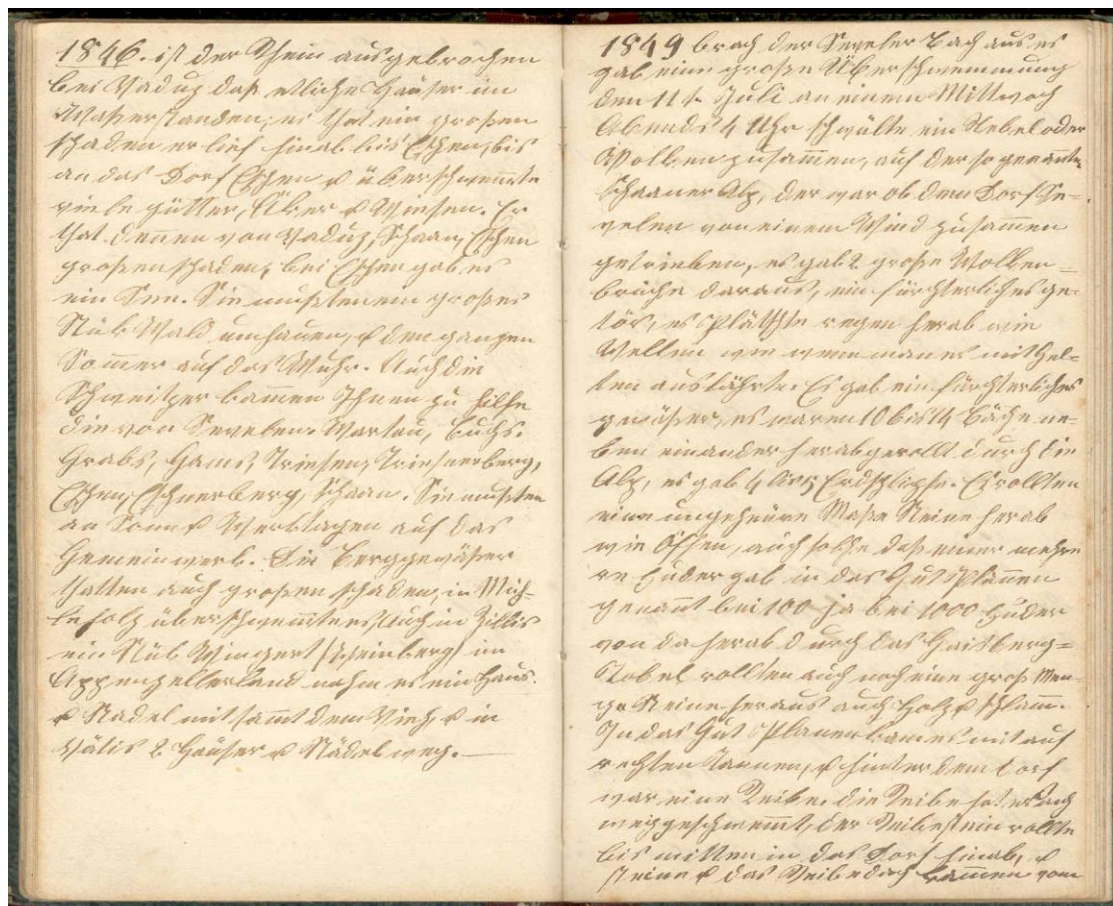 1846. ist der Rhein ausgebrochen
bei Vaduz daß etliche Häuser im
Waßer standen, es that ein großen
schaden er lief hinab bis Eschen, bis
an das Dorf Eschen u überschwemte
viele gütter, Äker u Wiesen. Er
that dennen von Vaduz, Schaan, Eschen
großen schaden, bei Eschen gab es
ein See. Sie mußten ein großes
Stük Wald umhauen, u den ganzen
Sommer auf das Wuhr. Auch die
Schweitzer kammen Ihnen zu hilfe
die von Sevelen. Wartau, Buchs.
Grabs, Gams, Triesen, Triesnerberg,
Eschen, Eschnerberg, Schaan. Sie mußten
an Sonn u Werktagen auf das
Gemeinwerk. Die Berggewäßer
thatten auch großen schaden, in
überschwemte es, Auch in
ein Stük Wingert (Weinberg) im
Appenzellerland nahm es ein Haus.
u Stadel mit samt dem Vieh u in
Vätis 2 Häuser u Städel weg. —
1849 brach der Seveler Bach aus es
gab eine große Überschwemmung
den 11t Juli an einem Mittwoch
Abends 4 Uhr schwälte ein Nebel oder
Wolken zusammen, auf der so genante
Schaaner Alp, der war ob dem Dorf Se-
velen von einem Wind zusammen
getrieben, es gab 2 große Wolken-
brüche daraus, ein fürchterliches ge-
tös, es plätschte regen herab wie
Wellen wie wenn man es mit Gel-
ten auslährte. Es gab ein fürchterliches
gewäßer, es waren 10 bis 14 Bäche ne-
ben einander herabgerollt durch die
Alp, es gab 4 bis 5 Erdschlipfe. Es rollten
eine ungeheure Maße Steine herab
wie Öffen, auch solche daß einer mehre
re Fuder gab in das Gut Planen
genannt bei 100 ja bei 1000 Fuder
von da herab durch das Gaitzberg-
Tobel rollten auch noch eine groß Men-
ge Steine heraus auch Holz u schlamm.
In das Gut Planen kam es mit auf
rechten Tannen, u hinter dem Dorf
war eine Reibe. die Reibe hat es auch
weggeschwemt, der Reibestein rollte
bis mitten in das Dorf hinab, u
Steine u das Reibedach kammen vom